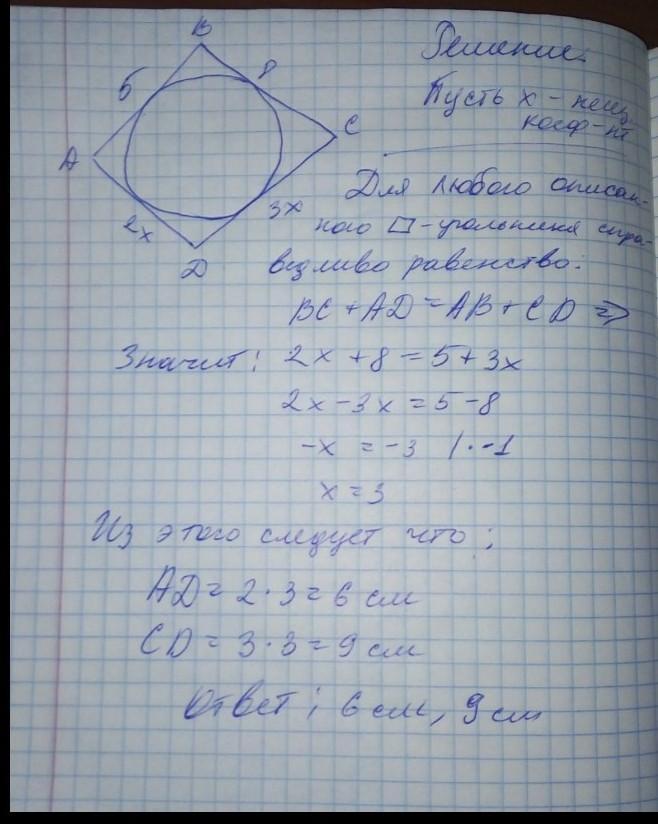 B
5
8
A
C
2x
3x
D
Решение:
Пусть x - неиз.
коэф-нт
Для любого описан-
ного □-угольника спра-
ведливо равенство:
BC + AD = AB + CD ⇒
Значит: 2x + 8 = 5 + 3x
2x - 3x = 5 - 8
-x = -3 | · -1
x = 3
Из этого следует что:
AD = 2 · 3 = 6 см
CD = 3 · 3 = 9 см
Ответ: 6 см, 9 см